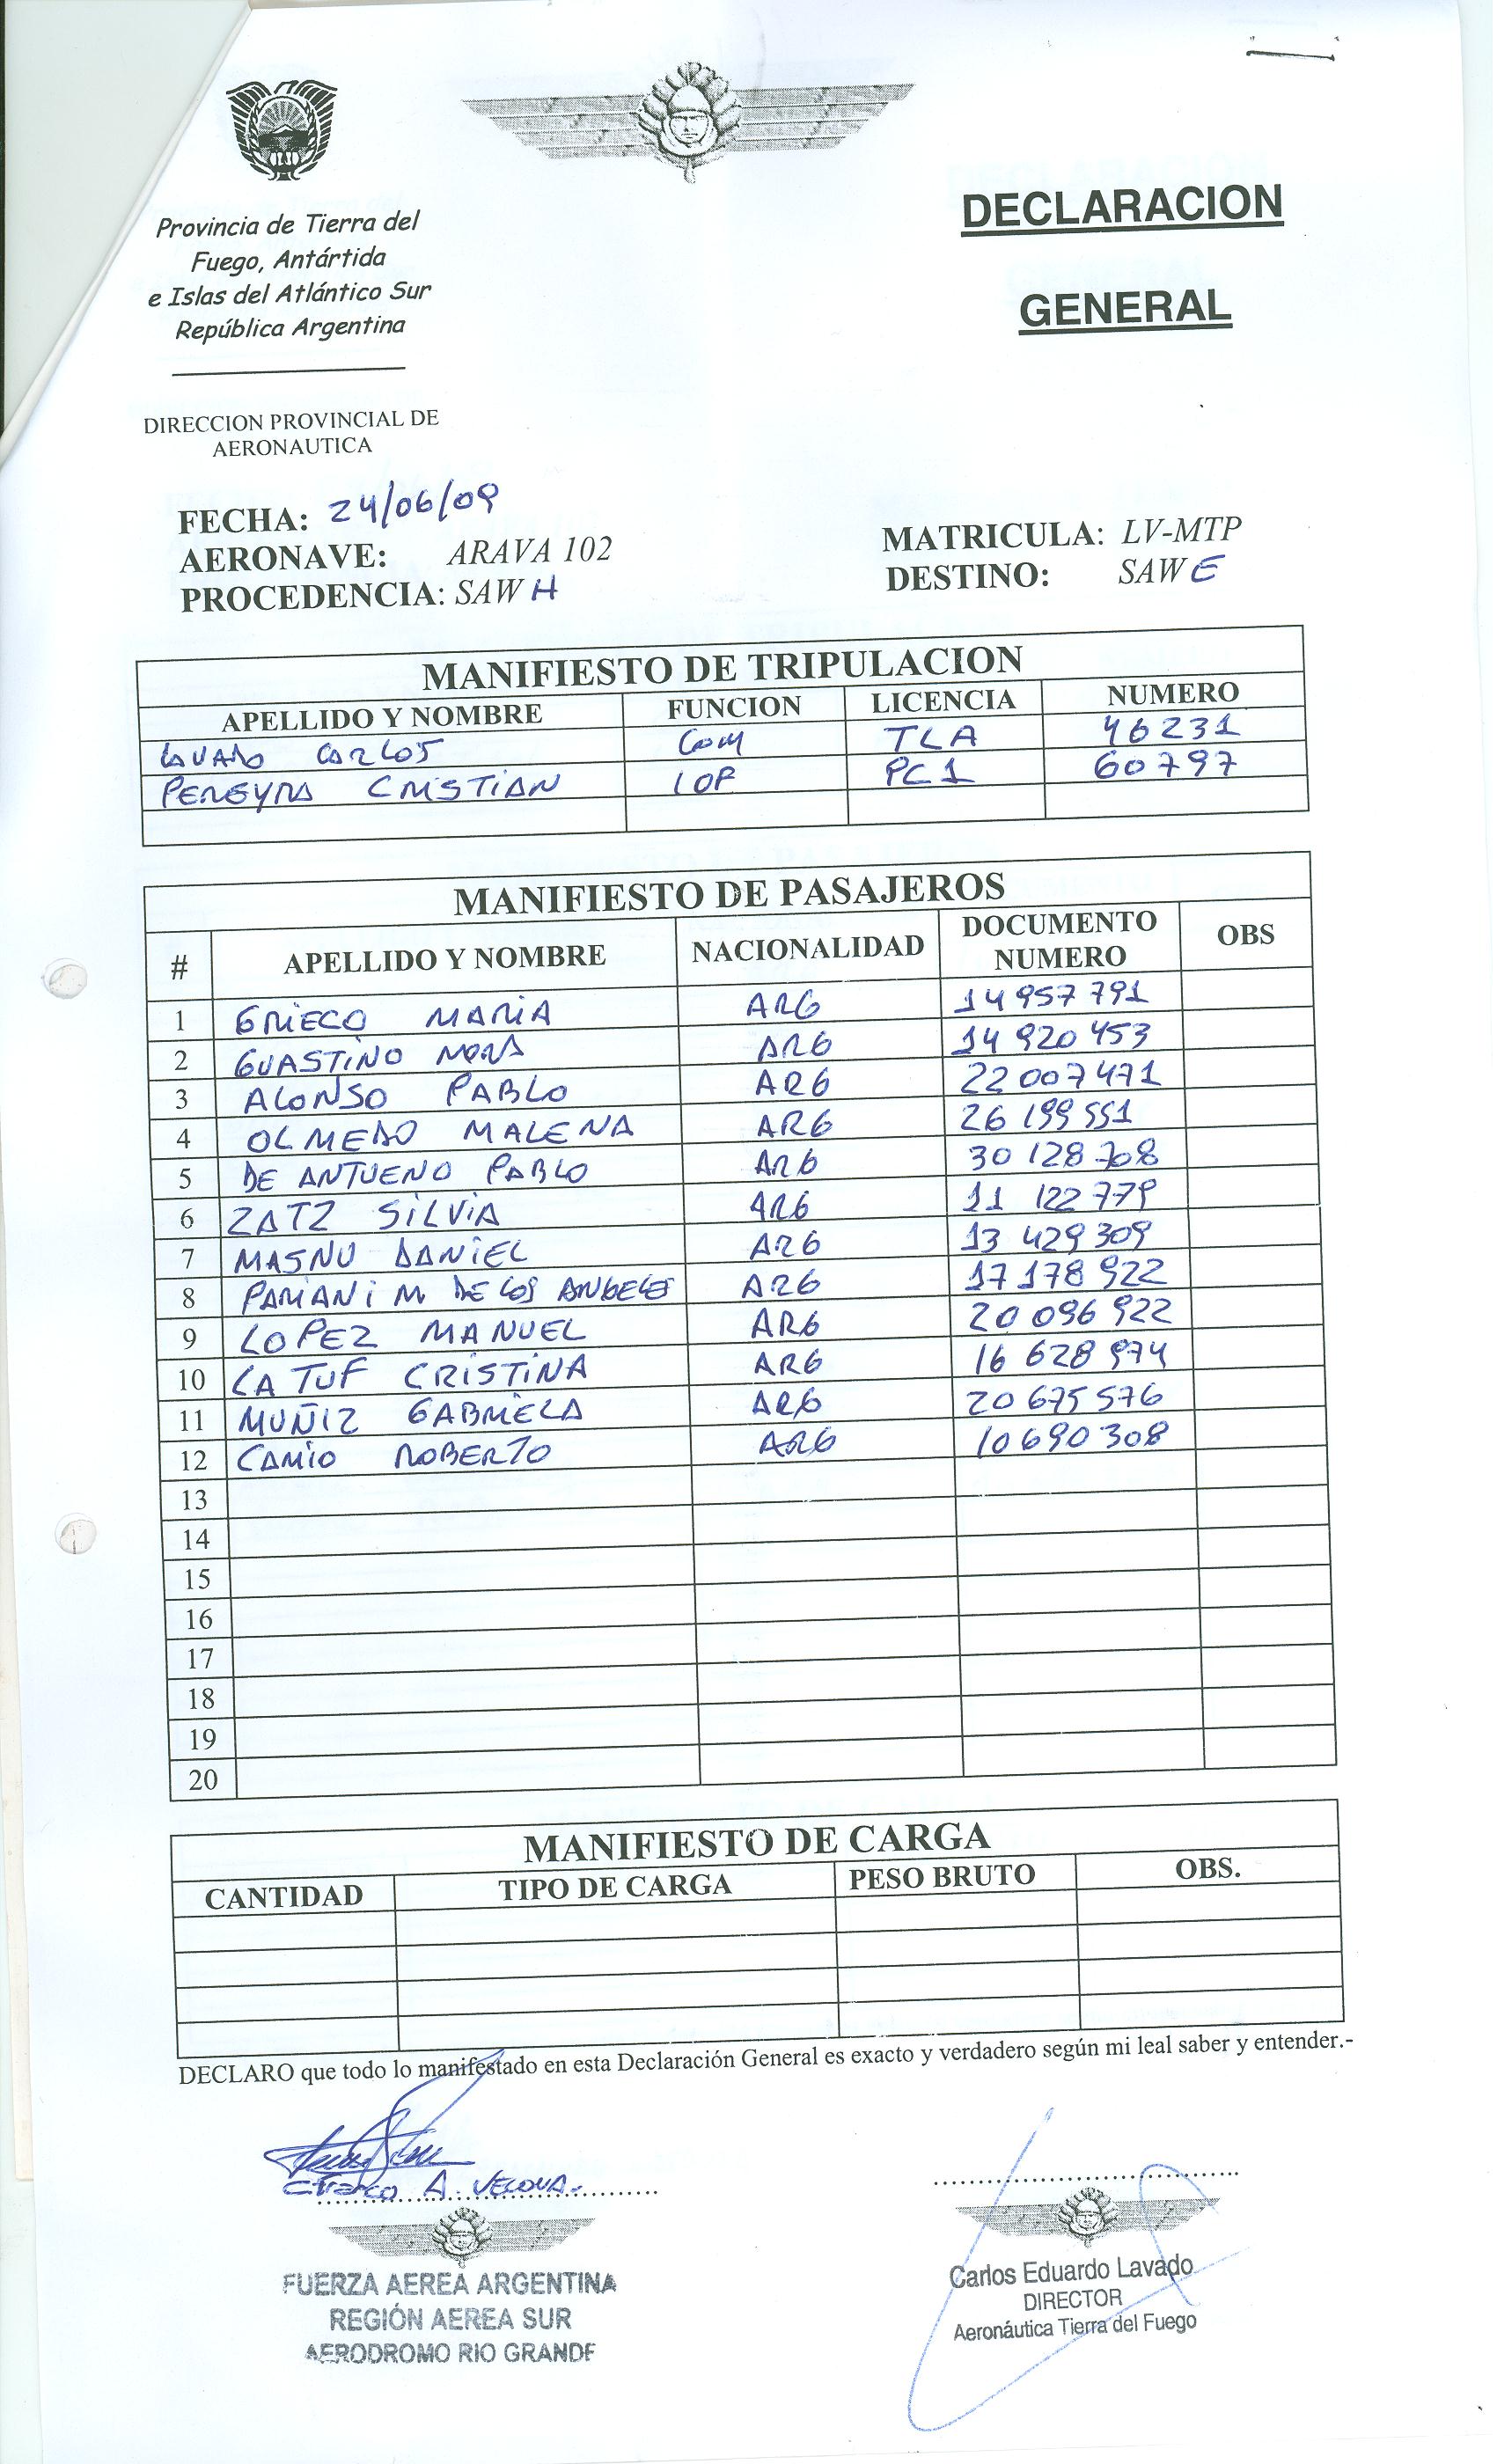 DECLARACION
GENERAL
Provincia de Tierra del
Fuego, Antártida
e Islas del Atlántico Sur
República Argentina
DIRECCION PROVINCIAL DE
AERONAUTICA
FECHA: 24/06/09
AERONAVE: ARAVA 102 MATRICULA: LV-MTP
PROCEDENCIA: SAWH DESTINO: SAWE
MANIFIESTO DE TRIPULACION
APELLIDO Y NOMBRE FUNCION LICENCIA NUMERO
LAVADO CARLOS COM TLA 46231
PEREYRA CRISTIAN 1OP PC1 60797
MANIFIESTO DE PASAJEROS
# APELLIDO Y NOMBRE NACIONALIDAD DOCUMENTO NUMERO OBS
1 GRIECO MARIA ARG 14 957 791
2 GUASTINO NORA ARG 14 920 453
3 ALONSO PABLO ARG 22 007 471
4 OLMEDO MALENA ARG 26 199 551
5 DE ANTUENO PABLO ARG 30 128 708
6 ZATZ SILVIA ARG 11 122 779
7 MASNU DANIEL ARG 13 429 309
8 PAMANI M. DE LOS ANGELES ARG 17 178 922
9 LOPEZ MANUEL ARG 20 096 922
10 LATUF CRISTINA ARG 16 628 974
11 MUÑIZ GABRIELA ARG 20 675 576
12 CAMIO ROBERTO ARG 10 690 308
13
14
15
16
17
18
19
20
MANIFIESTO DE CARGA
CANTIDAD TIPO DE CARGA PESO BRUTO OBS.
DECLARO que todo lo manifestado en esta Declaración General es exacto y verdadero según mi leal saber y entender.-
A.
FUERZA AEREA ARGENTINA
REGIÓN AEREA SUR
AERODROMO RIO GRANDE
Carlos Eduardo Lavado
DIRECTOR
Aeronáutica Tierra del Fuego